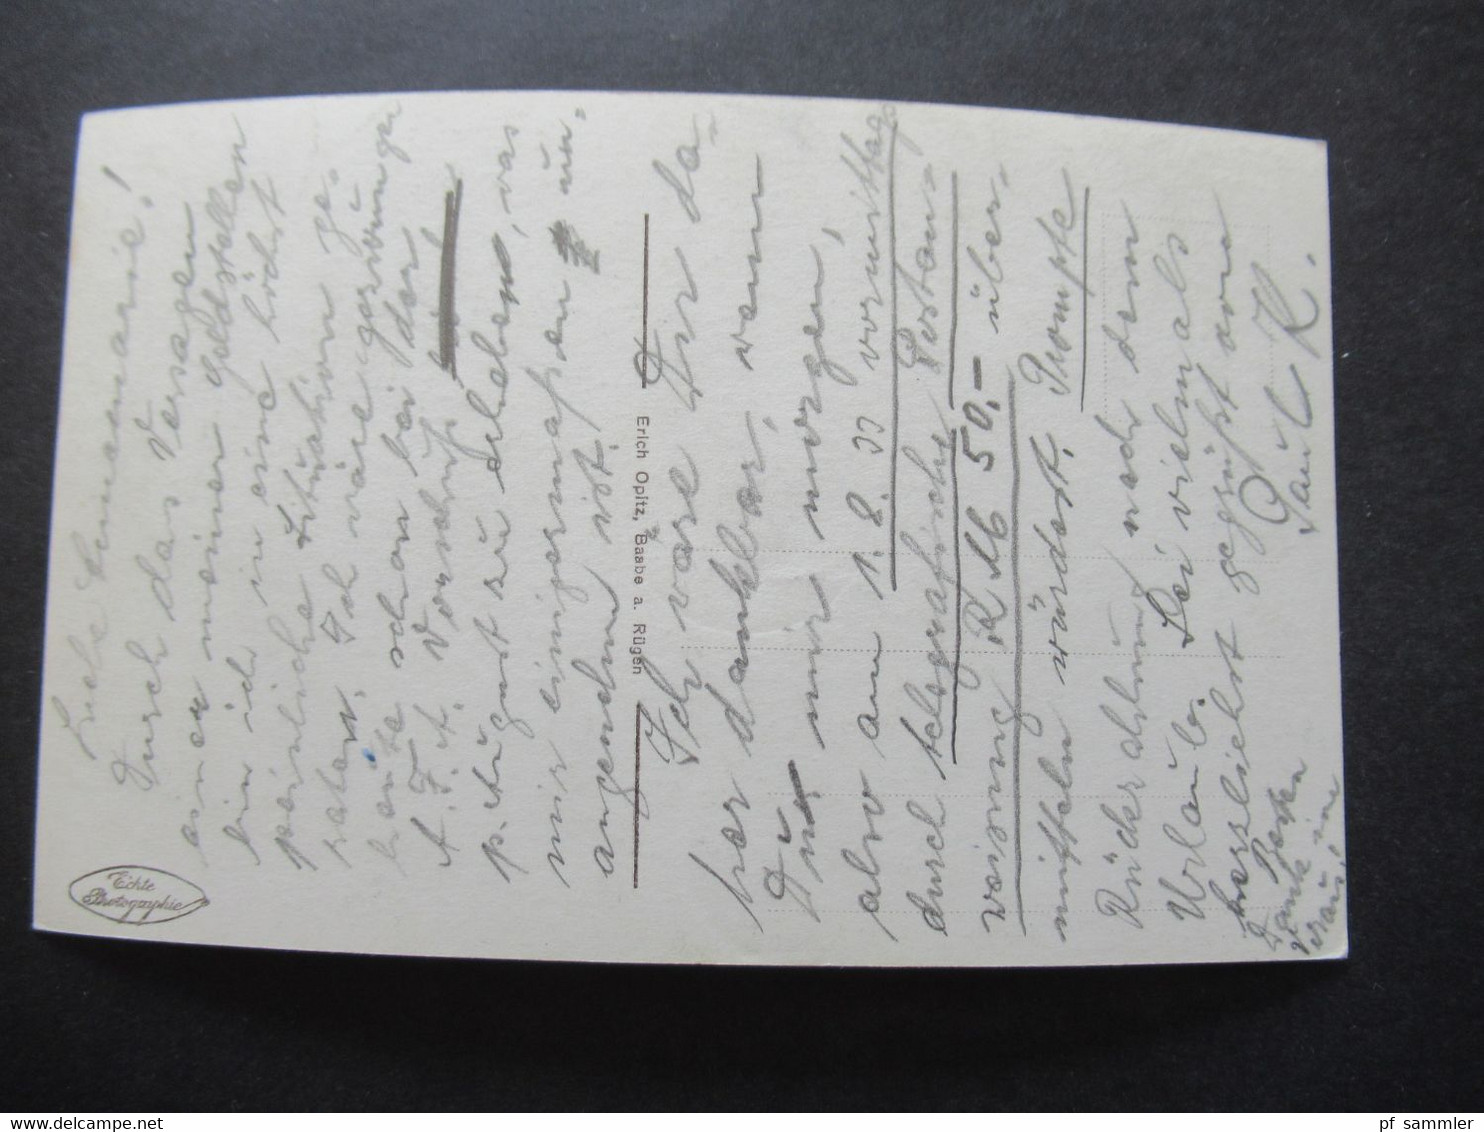 Liebe Annemarie!
Durch das Versagen
einer meiner Geldstellen
bin ich in eine höchst
peinliche Situation ge-
raten. Ich wäre gezwungen
heute schon bei der
A.F.A. Vorschuß
p. August zu erheben, was
mir einigermaßen un-
angenehm ist.
Ich wäre Dir da-
her dankbar, wenn
Du mir morgen,
also am 1.8.33 vormittags
durch telegrafische Postan-
weisung RM 50,- über-
mitteln würdest. Prompte
Rückzahlung nach dem
Urlaub. Sei vielmals
herzlichst gegrüßt von
Paul K.
Besten
Dank im
voraus!
Echte
Photographie
Erich Opitz, Baabe a. Rügen
pf sammler
www.delcampe.net